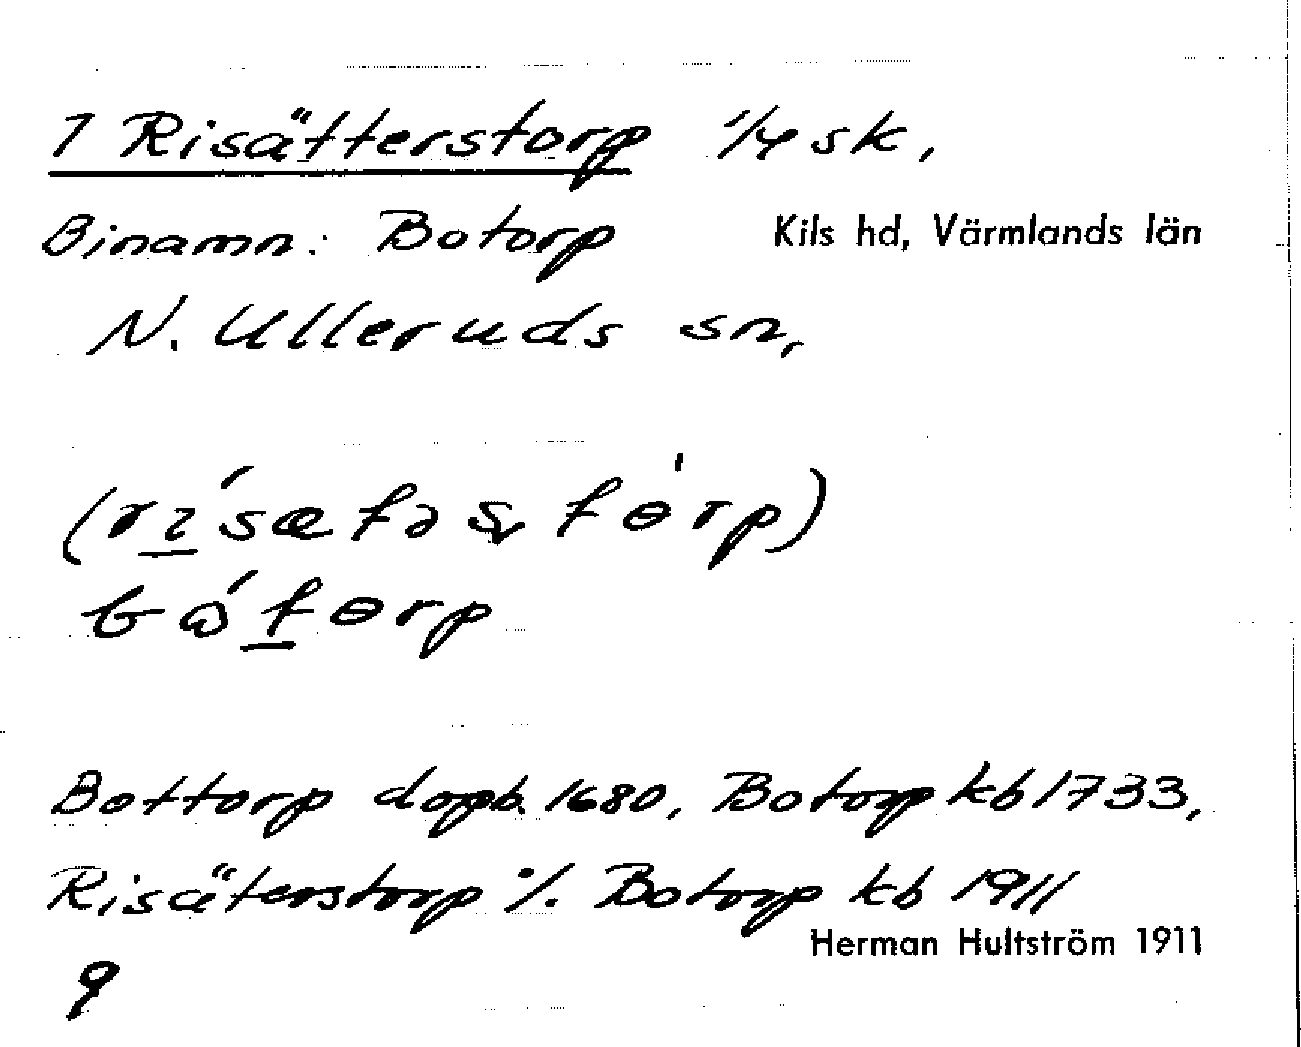 1 Risätterstorp 1/4 sk,
Binamn: Botorp Kils hd, Värmlands län
N. Ulleruds sn,
Bottorp dopb. 1680, Botorp kb 1733,
Risäterstorp %. Botorp kb 1911
Herman Hultström 1911
9